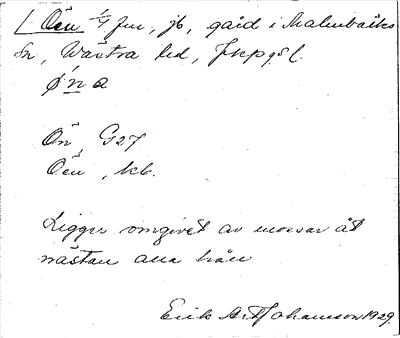 Öen 1/4 fm, jb, gård i Malmbäcks
sn, Västra hd, Jkpgs l.
ǿ'n a
Ön, G27
Öen, kb.
Ligger omgivet av mossar åt
nästan alla håll
Erik Arth Johansson 1929.